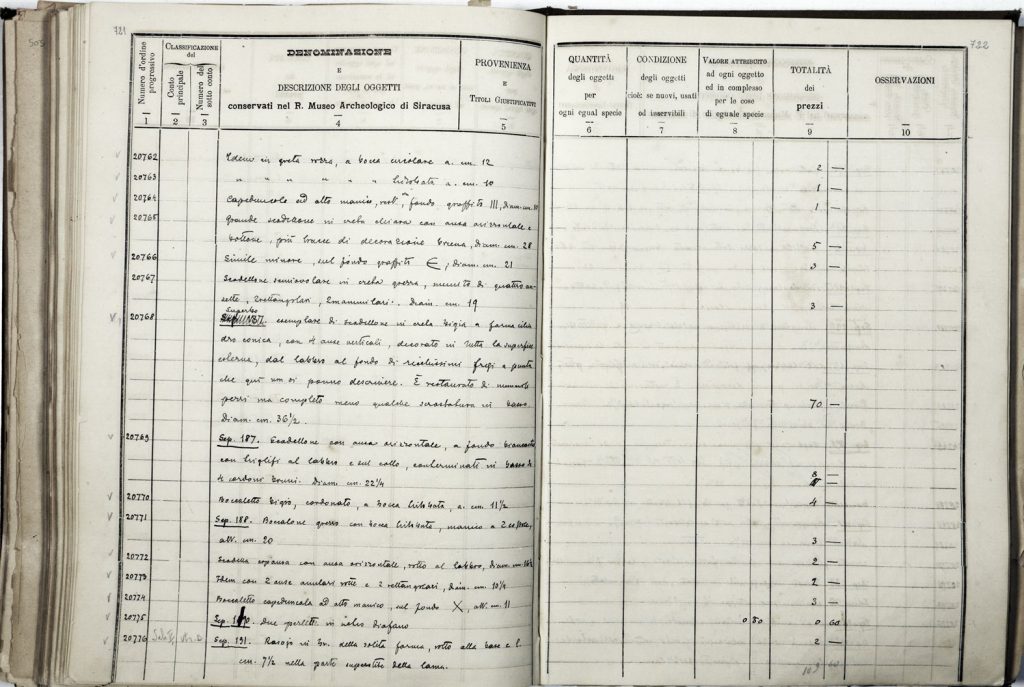 721
Numero d'ordine progressivo
CLASSIFICAZIONE del
Conto principale
Numero del sotto conto
DENOMINAZIONE
E
DESCRIZIONE DEGLI OGGETTI
conservati nel R. Museo Archeologico di Siracusa
PROVENIENZA
E
TITOLI GIUSTIFICATIVI
1 2 3 4 5
20762 Idem in creta nera, a bocca circolare a. cm. 12
20763 " " " " " " trilobata a. cm. 10
20764 Capeduncola ad alto manico, sul fondo graffito III, diam. cm.
20765 Grande scodellone in creta chiara con ansa orizzontale e
bottone, più tracce di decorazione bruna, diam. cm. 28
20766 Simile minore, sul fondo graffito Є, diam. cm. 21
20767 Scodellone semiovolare in creta grezza, munito di quattro an-
sette, 2 rettangolari, 2 mammillari. Diam. cm. 19
20768 Superbo esemplare di scodellone in creta bigia a forma cilin
dro conica, con 4 anse verticali, decorato in tutta la superficie
esterna, dal labbro al fondo di ricchissimi fregi a punta
che qui non si ponno descrivere. È restaurato di
pezzi ma completo meno qualche in basso.
Diam. cm. 36 1/2.
20769 Sep. 187. Scodellone con ansa orizzontale, a fondo biancastro
con triglifi al labbro e sul collo, conterminati in basso da
4 cordoni bruni. Diam. cm. 22 1/4
20770 Boccaletto bigio, cordonato, a bocca trilobata, a. cm. 11 1/2
20771 Sep. 188. Boccalone grezzo con bocca trilobata, manico a 2
alt. cm. 20
20772 Scodella espansa con ansa orizzontale, rotto al labbro, diam. cm.
20773 Idem con 2 anse anulari rotte e 2 rettangolari, diam. cm. 10 1/4
20774 Boccaletto capeduncola ad alto manico, sul fondo X, alt. cm. 11
20775 Sep. 190. Due perlette in vetro diafano
20776 Sep. 191. Rasojo in br. della solita forma, rotto alla base e l.
cm. 7 1/2 nella parte superstite della lama.
722
QUANTITÀ
degli oggetti
per
ogni egual specie
CONDIZIONE
degli oggetti
cioè: se nuovi, usati
od inservibili
VALORE ATTRIBUITO
ad ogni oggetto
ed in complesso
per le cose
di eguale specie
TOTALITÀ
dei
prezzi
OSSERVAZIONI
6 7 8 9 10
2 —
1 —
1 —
5 —
3 —
3 —
70 —
8 —
4 —
3 —
2 —
2 —
3 —
0 30 0 60
2 —
109 60